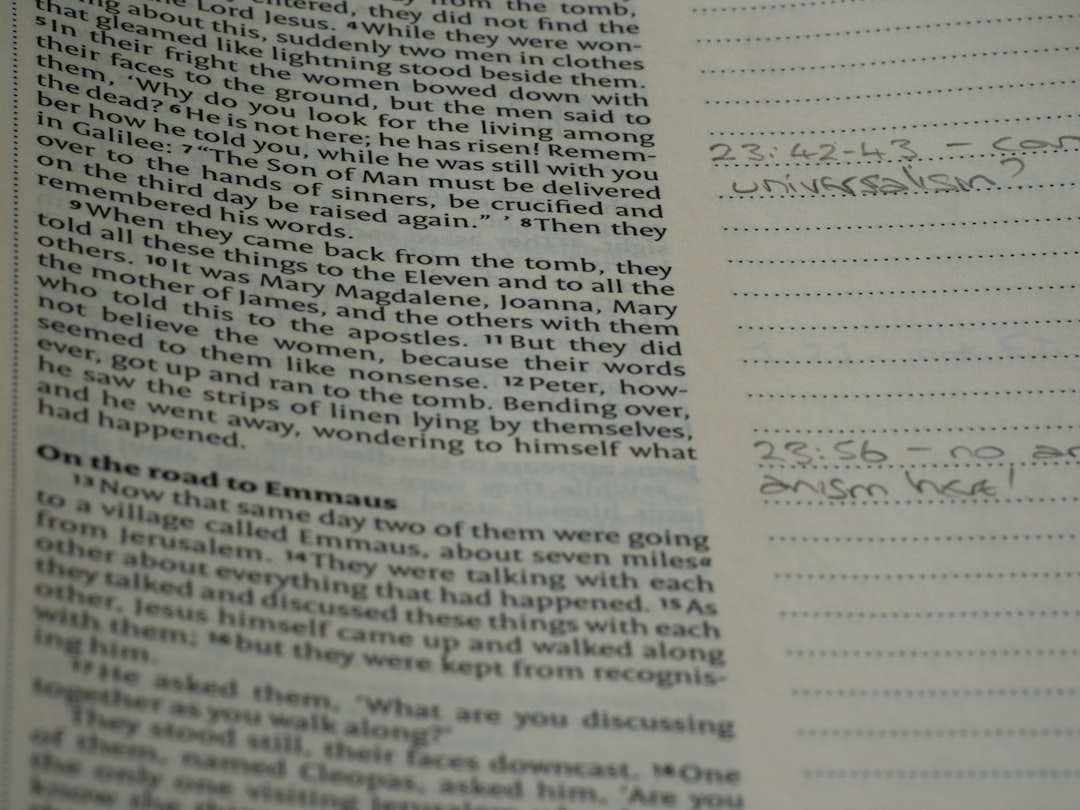 from the tomb,
entered, they did not find the
Lord Jesus. 4 While they were won-
about this, suddenly two men in clothes
that gleamed like lightning stood beside them.
5 In their fright the women bowed down with
their faces to the ground, but the men said to
them, ‘Why do you look for the living among
the dead? 6 He is not here; he has risen! Remem-
ber how he told you, while he was still with you
in Galilee: 7 “The Son of Man must be delivered
over to the hands of sinners, be crucified and
on the third day be raised again.” ’ 8 Then they
remembered his words.
9 When they came back from the tomb, they
told all these things to the Eleven and to all the
others. 10 It was Mary Magdalene, Joanna, Mary
the mother of James, and the others with them
who told this to the apostles. 11 But they did
not believe the women, because their words
seemed to them like nonsense. 12 Peter, how-
ever, got up and ran to the tomb. Bending over,
he saw the strips of linen lying by themselves,
and he went away, wondering to himself what
had happened.
On the road to Emmaus
13 Now that same day two of them were going
to a village called Emmaus, about seven miles a
from Jerusalem. 14 They were talking with each
other about everything that had happened. 15 As
they talked and discussed these things with each
other, Jesus himself came up and walked along
with them; 16 but they were kept from recognis-
ing him.
17 He asked them, ‘What are you discussing
together as you walk along?’
They stood still, their faces downcast. 18 One
of them, named Cleopas, asked him, ‘Are you
the only one visiting Jerusalem
23:42-43 –
universalism?
23:56 – no